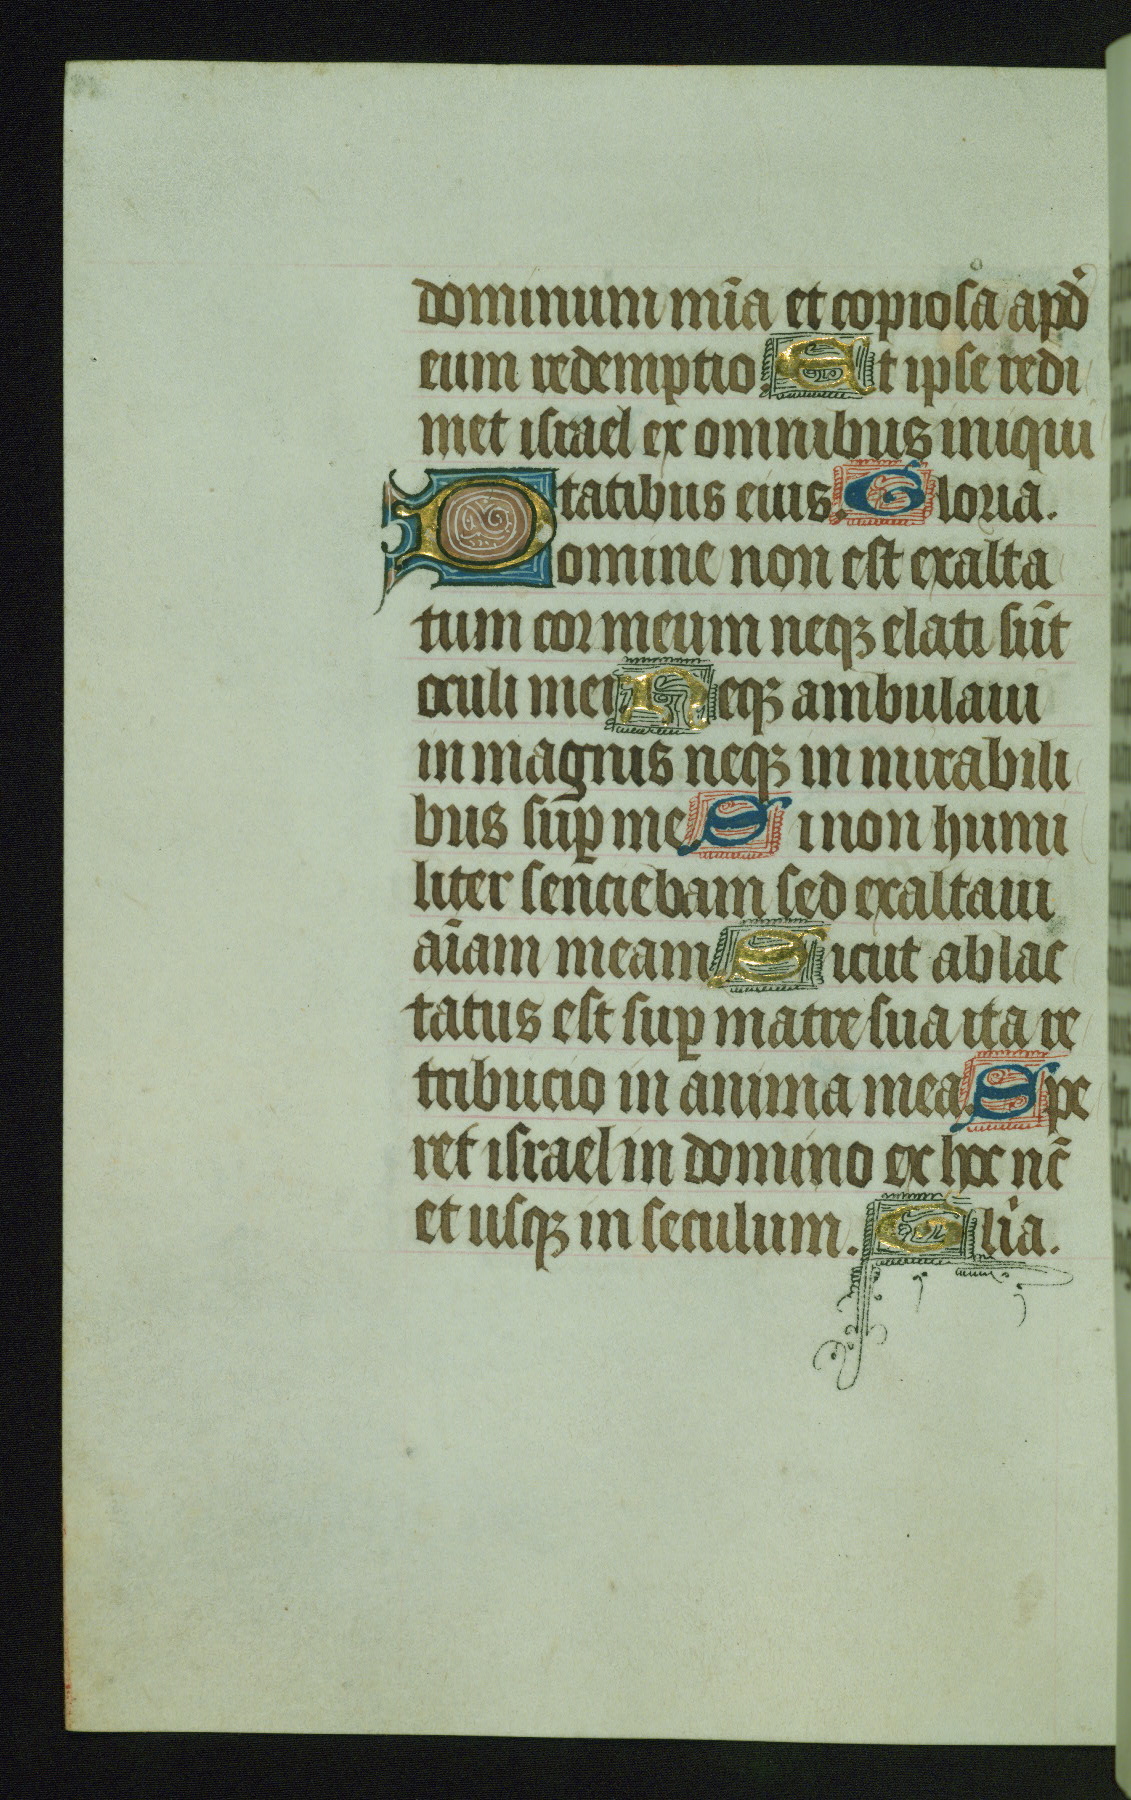 dominum mīa et copiosa apd̾
eum redemptio. Et ipse redi
met israel ex omnibus iniqui
tatibus eius. Gloria.
Domine non est exalta
tum cor meum neqꝫ elati sūt
oculi mei. Neqꝫ ambulaui
in magnis neqꝫ in mirabili
bus suꝑ me Si non humi
liter senciebam sed exaltaui
aīam meam Sicut ablac
tatus est suꝑ matre sua ita re
tribucio in anima mea. Spe
ret israel in domino ex hoc nc̄
et usqꝫ in seculum. Glīa.